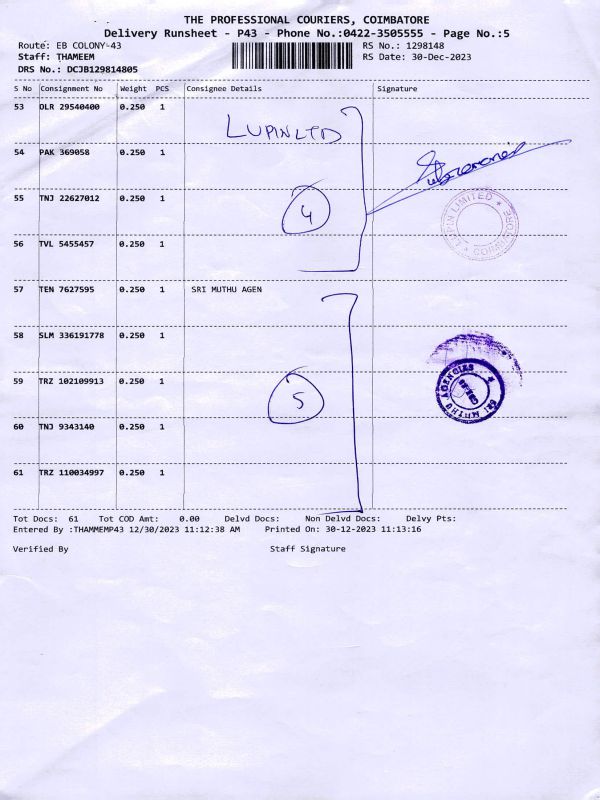 THE PROFESSIONAL COURIERS, COIMBATORE
Delivery Runsheet - P43 - Phone No.:0422-3505555 - Page No.:5
Route: EB COLONY-43 RS No.: 1298148
Staff: THAMEEM RS Date: 30-Dec-2023
DRS No.: DCJB129814805
S No Consignment No Weight PCS Consignee Details Signature
53 DLR 29540400 0.250 1
LUPIN LTD
54 PAK 369058 0.250 1
55 TNJ 22627012 0.250 1
4
LUPIN LIMITED * COIMBATORE *
56 TVL 5455457 0.250 1
57 TEN 7627595 0.250 1 SRI MUTHU AGEN
58 SLM 336191778 0.250 1
59 TRZ 102109913 0.250 1
5
SRI MUTHU AGENCIES *
60 TNJ 9343140 0.250 1
61 TRZ 110034997 0.250 1
Tot Docs: 61 Tot COD Amt: 0.00 Delvd Docs: Non Delvd Docs: Delvy Pts:
Entered By :THAMMEMP43 12/30/2023 11:12:38 AM Printed On: 30-12-2023 11:13:16
Verified By Staff Signature